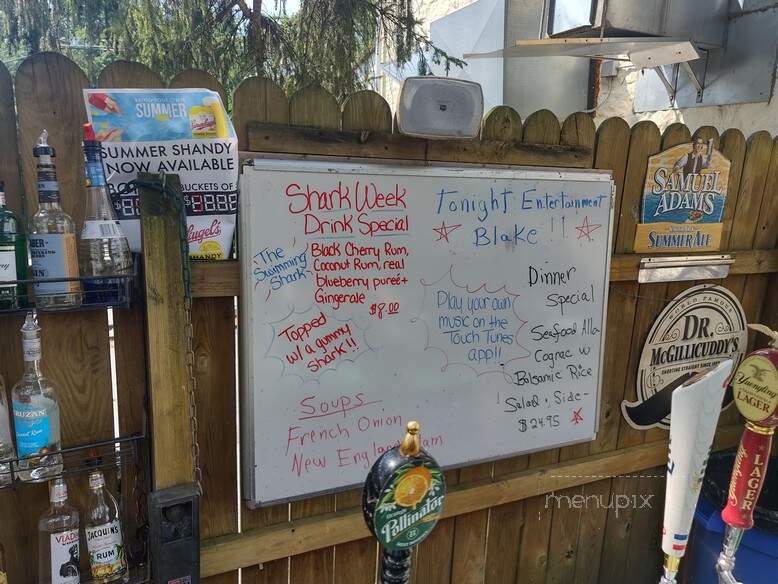 SUMMER
SUMMER SHANDY
NOW AVAILABLE
BUCKETS OF
SHANDY
SAMUEL
ADAMS
SUMMER ALE
Shark Week
Drink Special
The
Swimming
Shark
Black Cherry Rum,
Coconut Rum, real
blueberry pureé +
Gingerale
$8.00
Topped
w/ a gummy
shark!!
Soups
French Onion
New Engla
am
Tonight Entertainment
Blake !!
Play your own
music on the
Touch Tunes
app!!
Dinner
Special
Seafood Alla
Cognac w
Balsamic Rice
Salad + Side -
$24.95
WORLD FAMOUS
DR.
McGILLICUDDY'S
Yuengling
LAGER
LAGER
Pollinator
CRUZAN
JACQUIN'S
RUM
VLAD
menupix